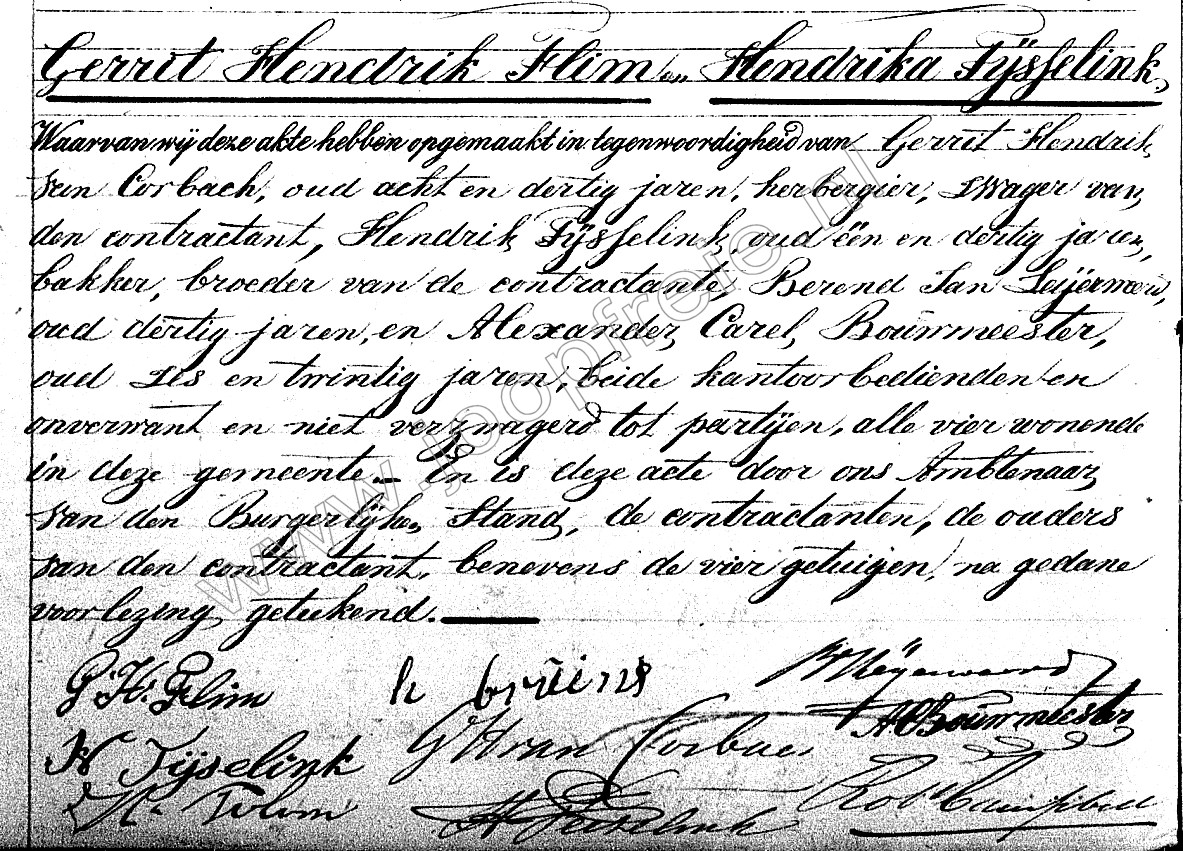 Gerrit Hendrik Flim en Hendrika Tijsselink,
Waarvan wij deze akte hebben opgemaakt in tegenwoordigheid van Gerrit Hendrik
van Corbach, oud acht en dertig jaren, herbergier, zwager van
den contractant, Hendrik Tijsselink, oud één en dertig jaren,
bakker, broeder van de contractante, Berend Jan
oud dertig jaren, en Alexander Carel Bouwmeester,
oud zes en twintig jaren, beide kantoorbedienden en
onverwant en niet verzwagerd tot partijen, alle vier wonende
in deze gemeente. – En is deze acte door ons Ambtenaar
van den Burgerlijken Stand, de contractanten, de ouders
van den contractant, benevens de vier getuigen, na gedane
voorlezing geteekend.
G. H. Flim h bruins
H Tijselink G H van Corbach A C Bouwmeester
H. Flim H Tijsselink
www.joopfreie.nl